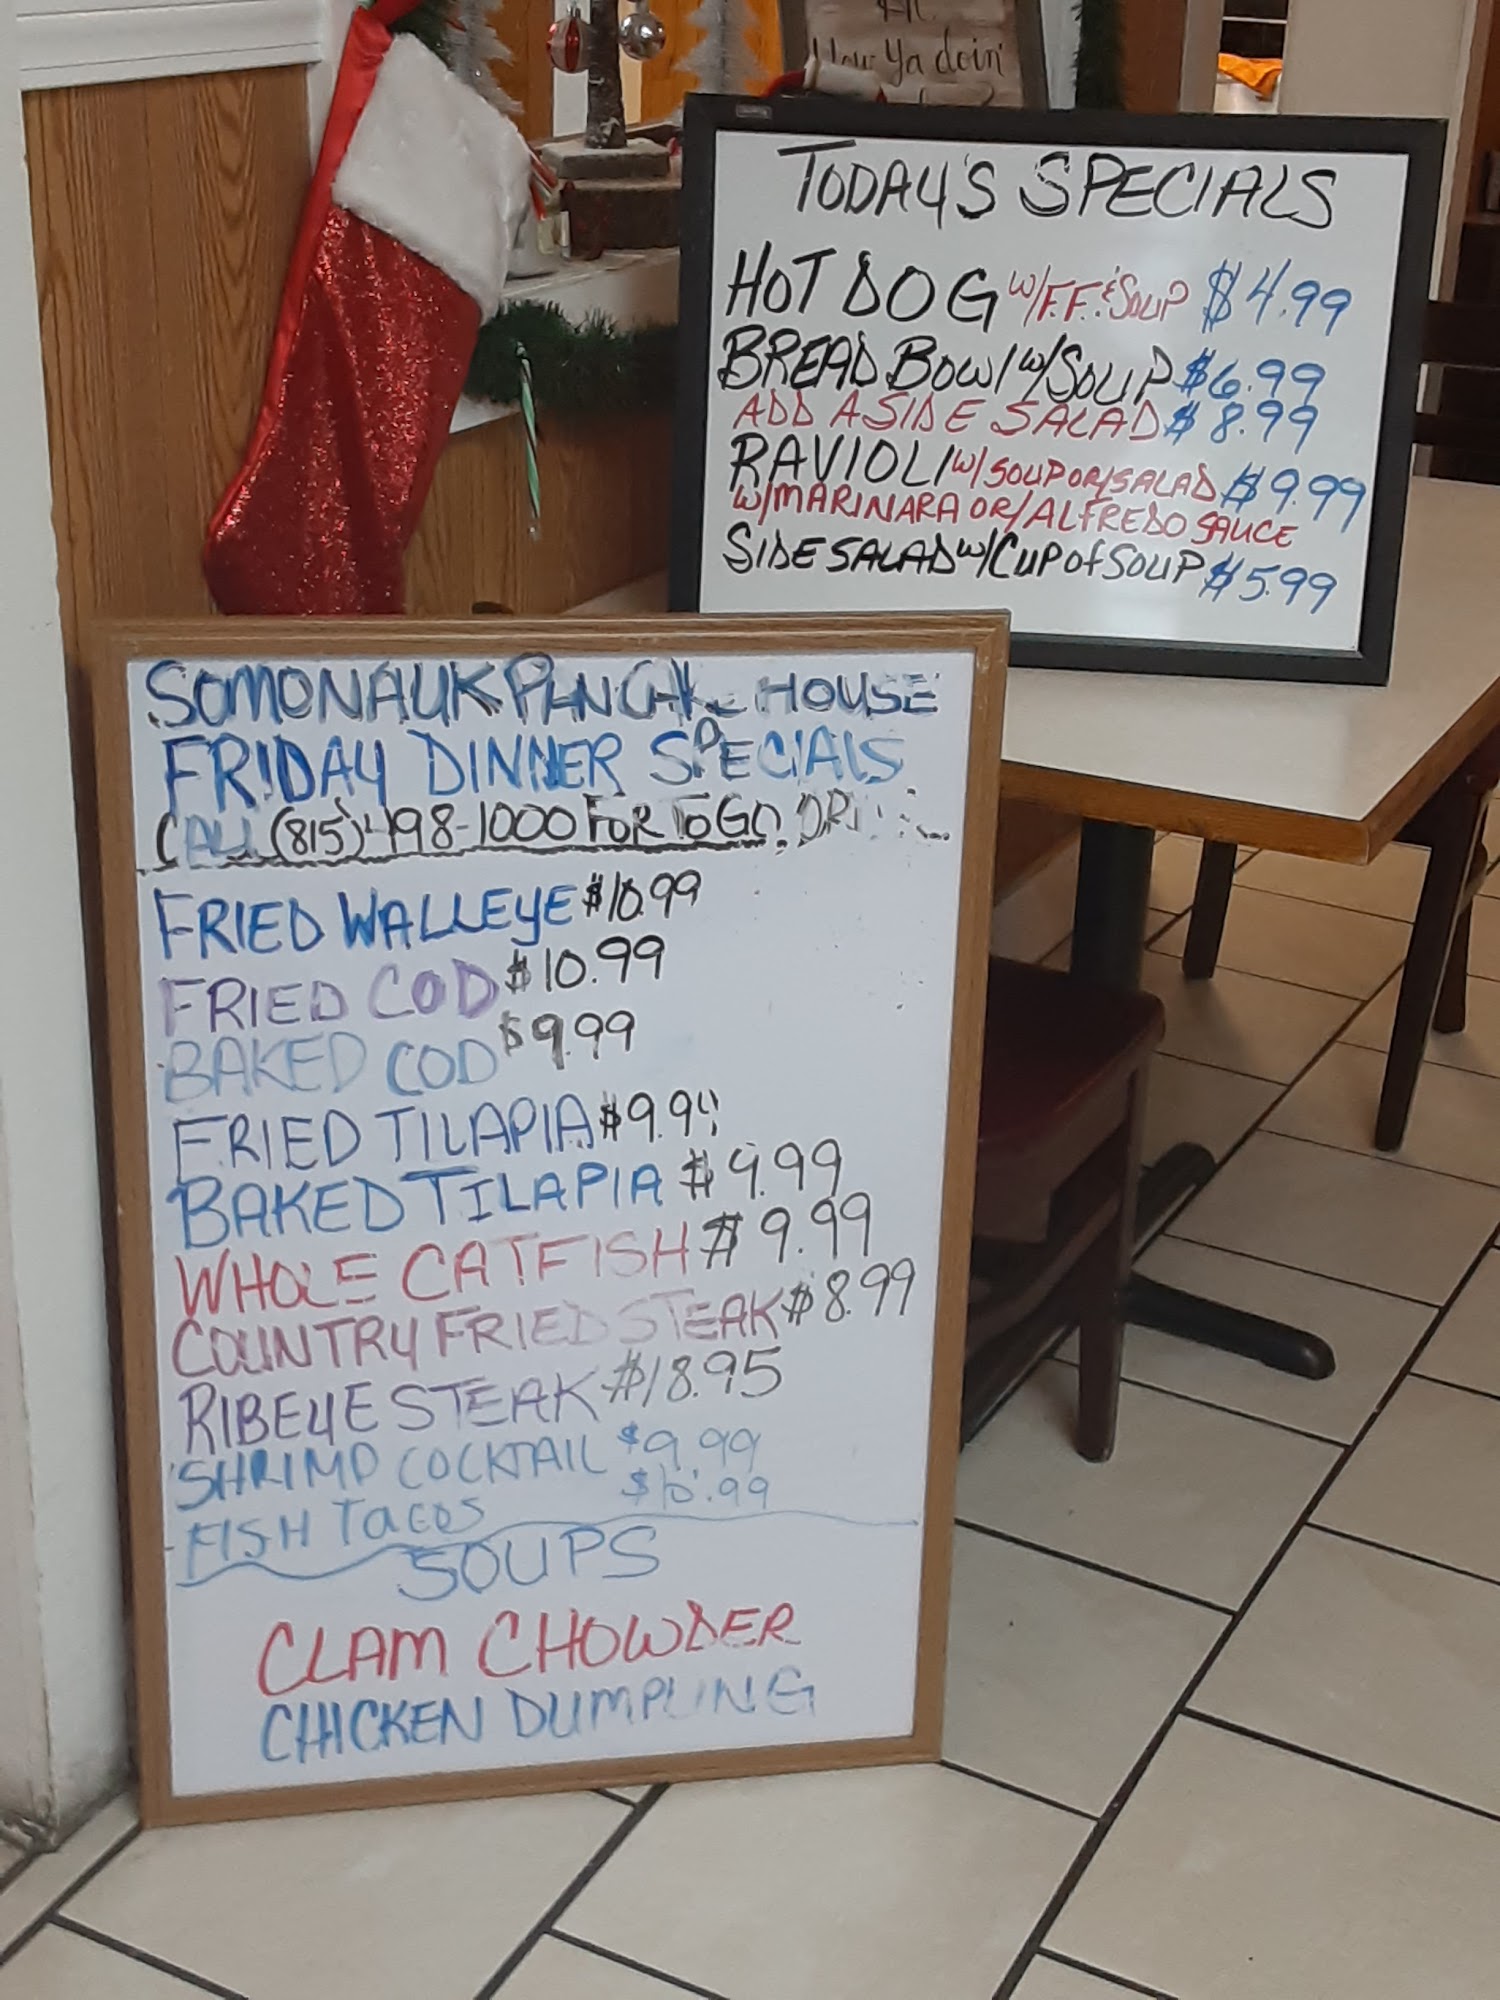 How Ya doin'
TODAY'S SPECIALS
HOT DOG W/F.F. & SOUP $4.99
BREAD BOWL W/SOUP $6.99
ADD A SIDE SALAD $8.99
RAVIOLI W/SOUP OR/SALAD $9.99
W/MARINARA OR/ALFREDO SAUCE
SIDE SALAD W/CUP OF SOUP $5.99
SOMONAUK PANCAKE HOUSE
FRIDAY DINNER SPECIALS
CALL (815) 498-1000 FOR TO GO
FRIED WALLEYE $10.99
FRIED COD $10.99
BAKED COD $9.99
FRIED TILAPIA $9.99
BAKED TILAPIA $9.99
WHOLE CATFISH $9.99
COUNTRY FRIED STEAK $8.99
RIBEYE STEAK $18.95
SHRIMP COCKTAIL $9.99
FISH TACOS $10.99
SOUPS
CLAM CHOWDER
CHICKEN DUMPLING